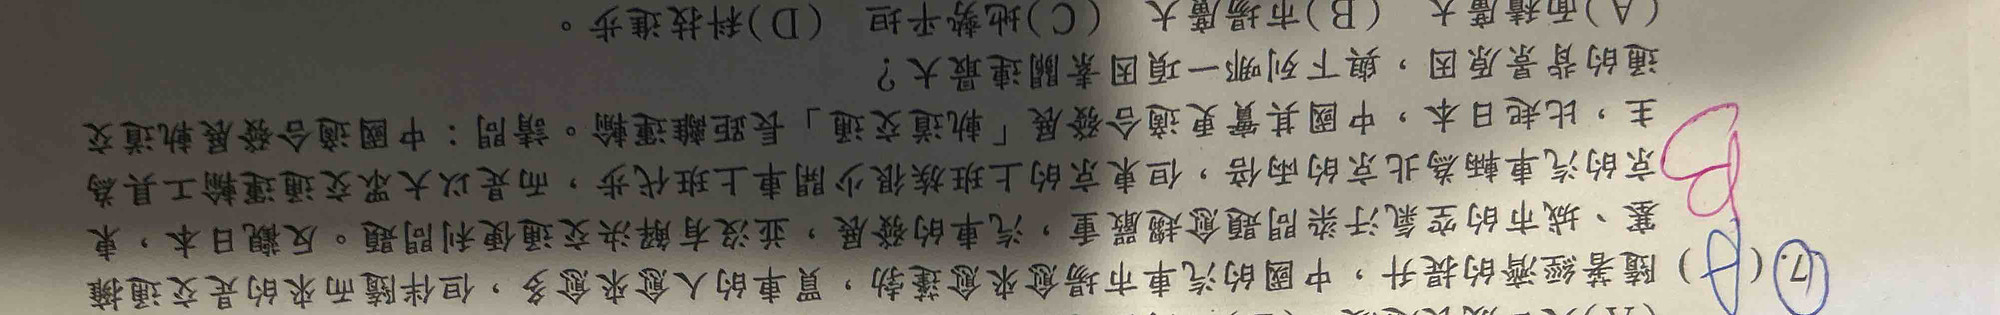 17.( A )隨著經濟的提升，中國的汽車市場愈來愈蓬勃，買車的人愈來愈多，但伴隨而來的是交通擁
塞、城市的空氣汙染問題愈趨嚴重，汽車的發展，並沒有解決交通便利問題。反觀日本，東
京的汽車輛為北京的兩倍，但東京的上班族很少開車上班代步，而是以大眾交通運輸工具為
主，比起日本，中國其實更適合發展「軌道交通」長距離運輸。請問：中國適合發展軌道交
通的背景原因，與下列哪一項因素關連最大？
(A)面積廣大 (B)市場廣大 (C)地勢平坦 (D)科技進步。
B